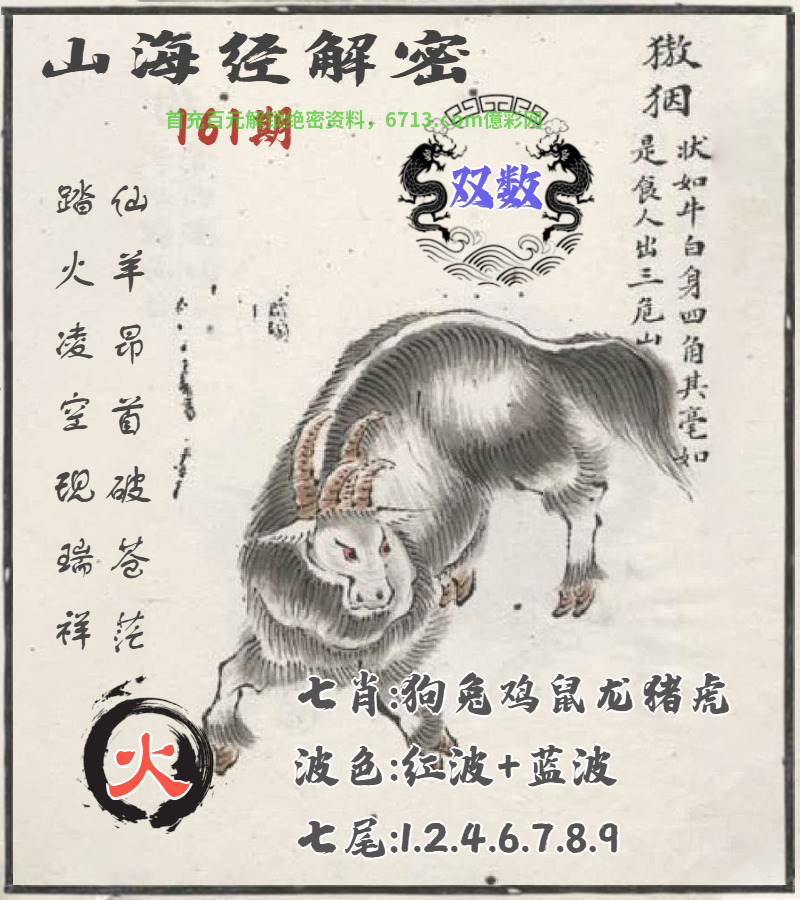 山海经解密
161期
首充百元解锁绝密资料，6713.com億彩网
双数
獓䄄
状如牛白身四角其毫如
是食人出三危山
仙羊昂首破苍茫
踏火凌空现瑞祥
火
七肖:狗兔鸡鼠龙猪虎
波色:红波+蓝波
七尾:1.2.4.6.7.8.9